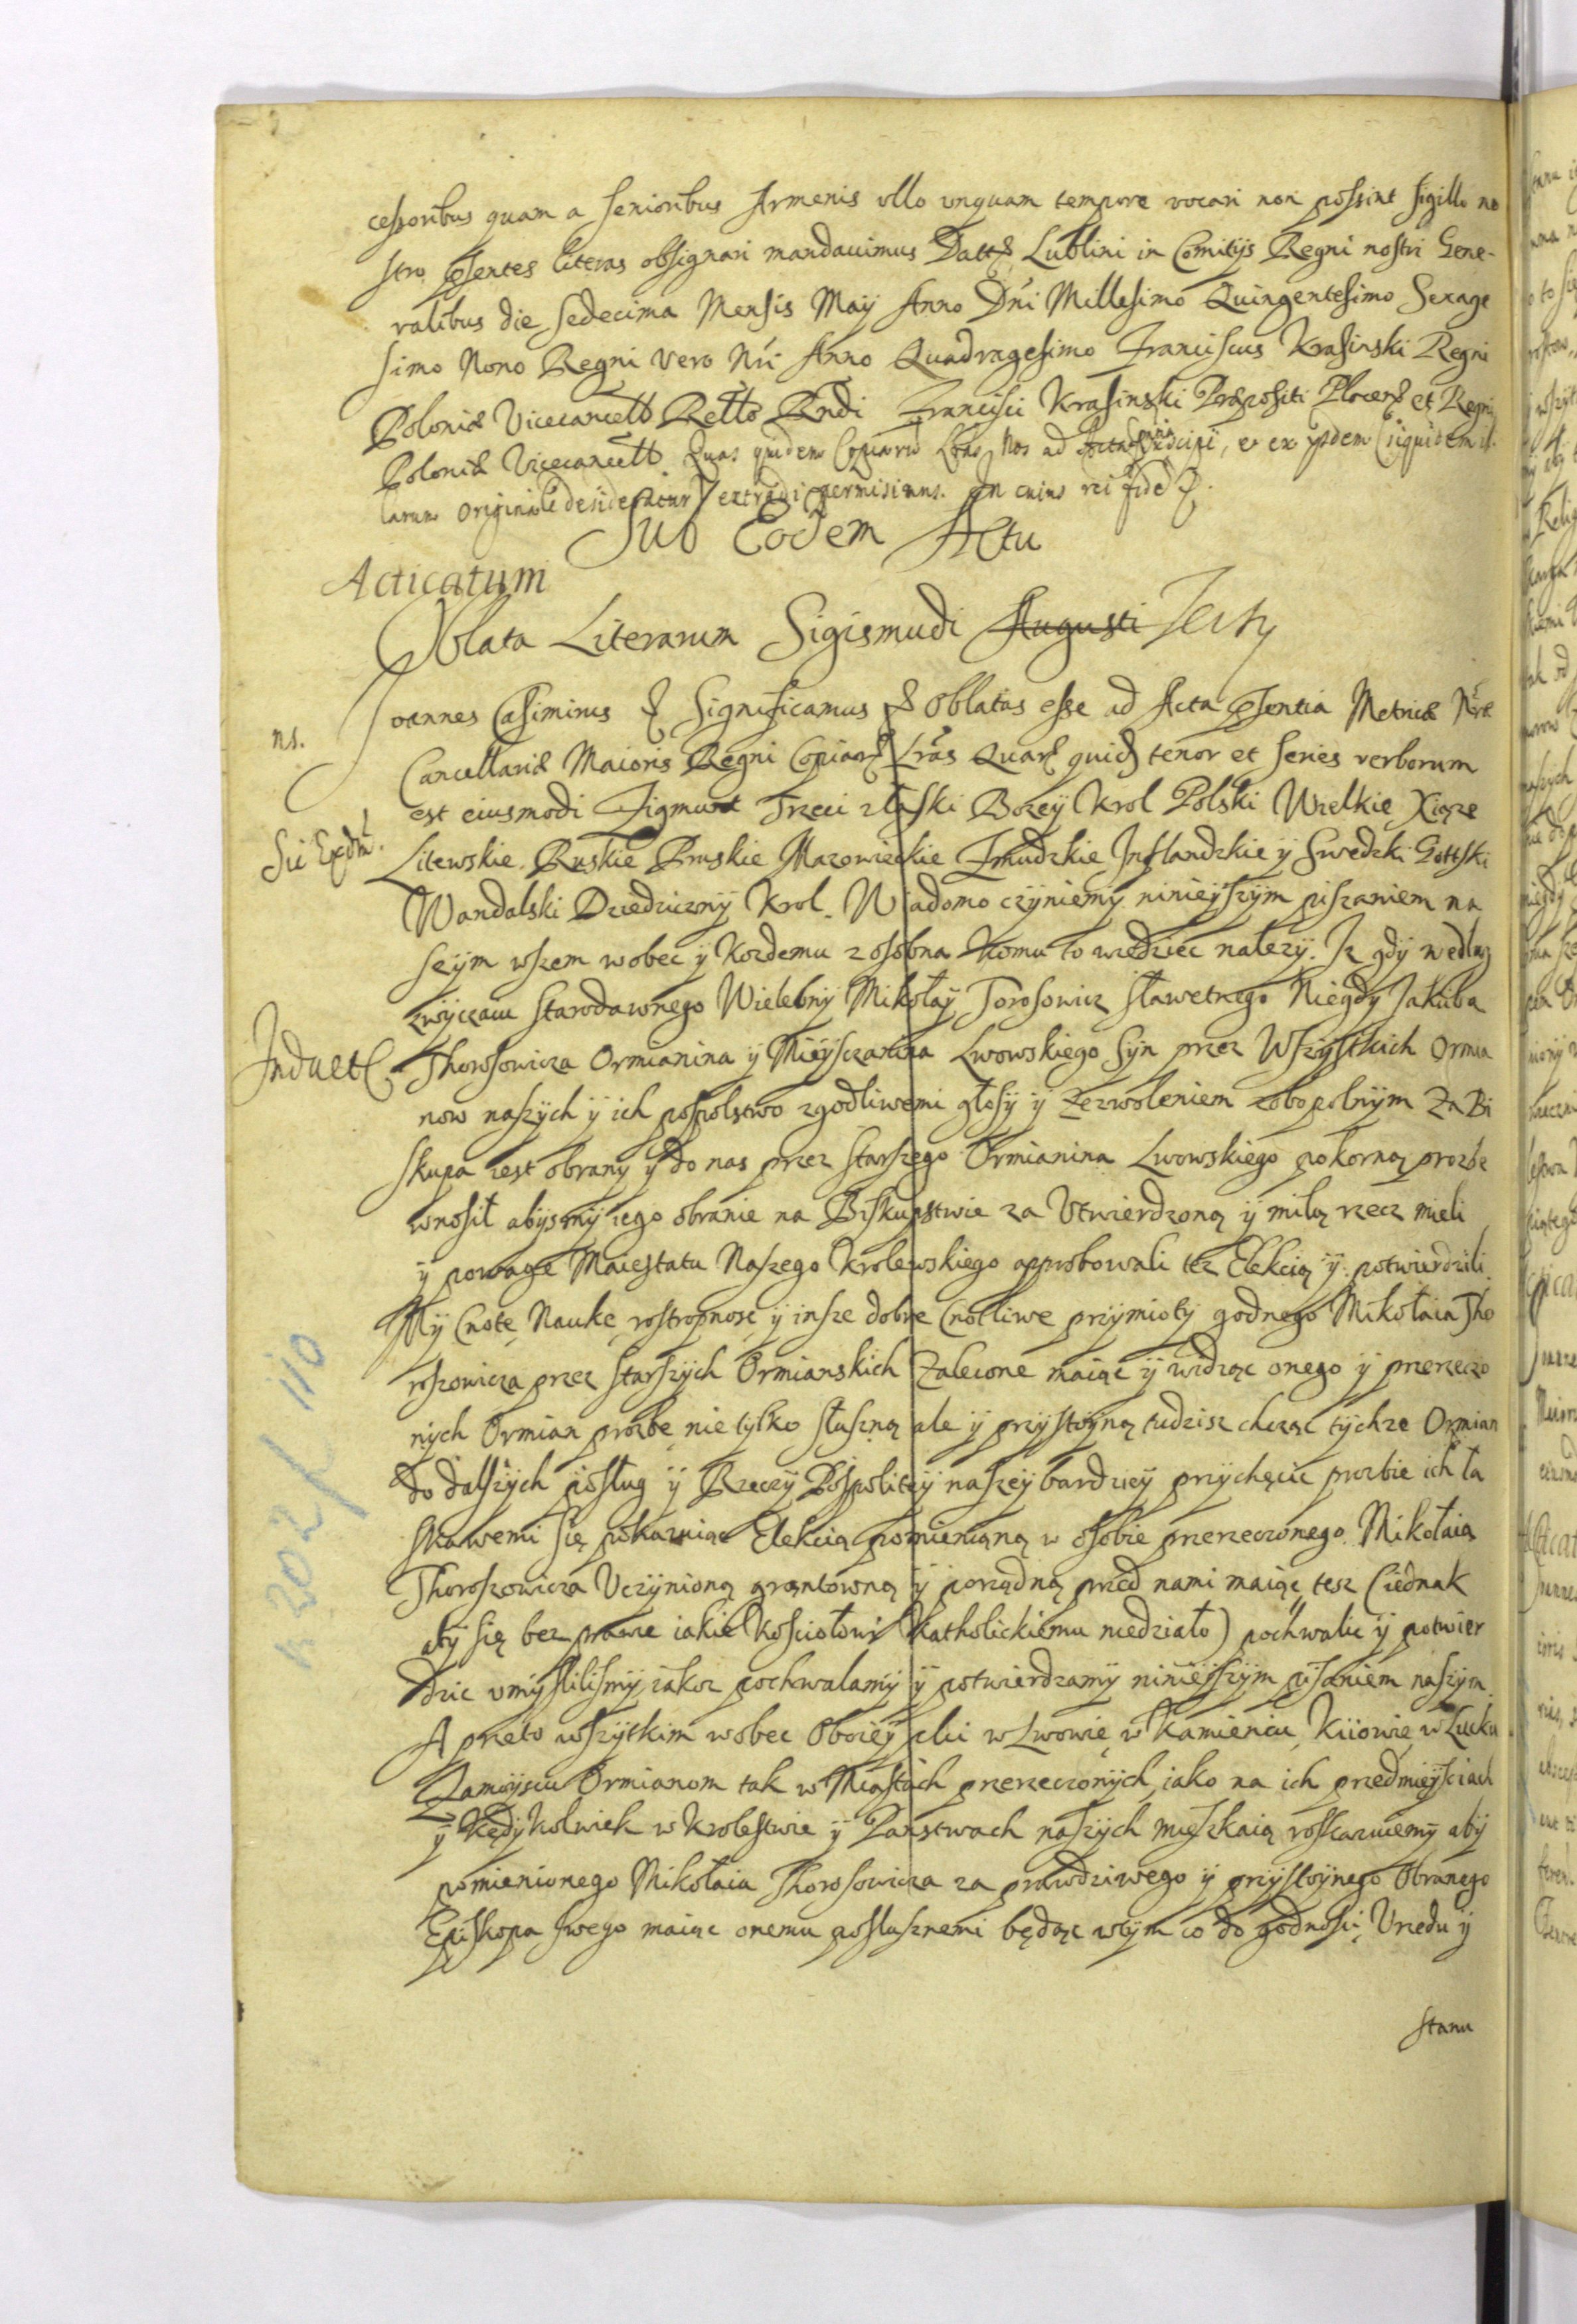 cessoribus quam a Senioribus Armenis vllo vnquam tempore vocari non possint sigillo no
stro pñtes literas obsignari mandauimus Datt Lublini in Comitijs Regni nostri Gene-
ralibus die sedecima Mensis Maij Anno Dñi Millesimo Quingentesimo Sexage
simo Nono Regni vero Nri Anno Quadragesimo Franciscus Krasinski Regni
Poloniæ Vicecancell Rellõ Rndi Francisci Krasinski Præpositi Plocen et Regni
Poloniæ Vicecancell. Quas quidem Copiarũ Lras Nos ad Acta suscipi, et ex ijsdem (siquidem il-
larum originale desideratur) extradi permisimus. In cuius rei fidẽ &.
Sub Eodem Actu
Acticatum
Oblata Literarum Sigismũdi Augusti Tertij
ns.
Joannes Casimirus & Significamus & Oblatas esse ad Acta pñtia Metricæ Nræ
Cancellariæ Maioris Regni Copiar Lrãs Quar quid tenor et series verborum
est eiusmodi Zigmunt Trzeci z łaski Bozey Krol Polski Wielkie Xiąze
Sic Expdm.
Litewskie Ruskie Pruskie Mazowieckie Zmudzkie Inflandzkie ÿ Swedzki Gottski
Wandalski Dziedzicznÿ Krol. Wiadomo czÿniemÿ ninieÿszÿm piszaniem na
szÿm wszem wobec ÿ Kozdemu z osobna Komu to wiedziec nalezÿ. Iz gdÿ wedlug
zwÿczaiu starodawnego Wielebnÿ Mikołaÿ Torosowicz sławetnego Niegdÿ Jakuba
Induct
Thorosowicza Ormianina ÿ Mieÿsczanina Lwowskiego Sÿn przez Wszÿstkich Ormia
now naszÿch ÿ ich pospolstwo zgodliwemi głosÿ ÿ zezwoleniem zobopolnÿm Za Bi
skupa iest obranÿ ÿ do nas przez starszego Ormianina Lwowskiego pokorną prozbe
wnosił abÿsmÿ iego obranie na Biskupstwie za Vtwierdzoną ÿ miłą rzecz mieli
ÿ powagę Maiestatu Naszego Krolewskiego approbowali tez Elekcią ÿ potwierdzili
Mÿ Cnotę Naukę rostropnosc ÿ insze dobre Cnotliwe przÿmiotÿ godnego Mikołaia Tho
roszowicza przez starszÿch Ormianskich Zalecone maiąc ÿ widząc onego ÿ przerzeczo
nÿch Ormian prozbę nie tÿlko słuszną ale ÿ przÿstoÿną tudzisz chcząc tÿchze Ormian
do dalszÿch posług ÿ Rzeczÿ Pospoliteÿ naszeÿ bardzieÿ przÿchęcic prozbie ich ła
skawemi się pokazuiąc Elekcią pomienianą w osobie przerzeczonego Mikołaia
Thoroszowicza Vczÿnioną gruntowną ÿ porządną przed nami maiąc tesz (iednak
abÿ się bez prawie iakie Kosciołowi Katholickiemu niedziało) pochwalic ÿ potwier
dzic vmÿslilismÿ iakoz pochwalamÿ ÿ potwierdzamÿ ninieÿszÿm pisaniem naszÿm
A przeto wszÿtkim wobec Oboieÿ płci w Lwowie w Kamiencu Kiiowie w Łucku
Zamoÿsciu Ormianom tak w Miastach przerzeczonÿch iako na ich przedmieÿsciach
ÿ kędÿkolwiek w Krolestwie ÿ Panstwach naszÿch mieszkaią roskazuiemÿ abÿ
pomienionego Mikołaia Thorosowicza za prawdziwego ÿ przÿstoÿnego Obranego
Episkopa swego maiąc onemu poslusznemi będąc wtÿm co do godnosci Vrzedu ÿ
stanu
k 202/110